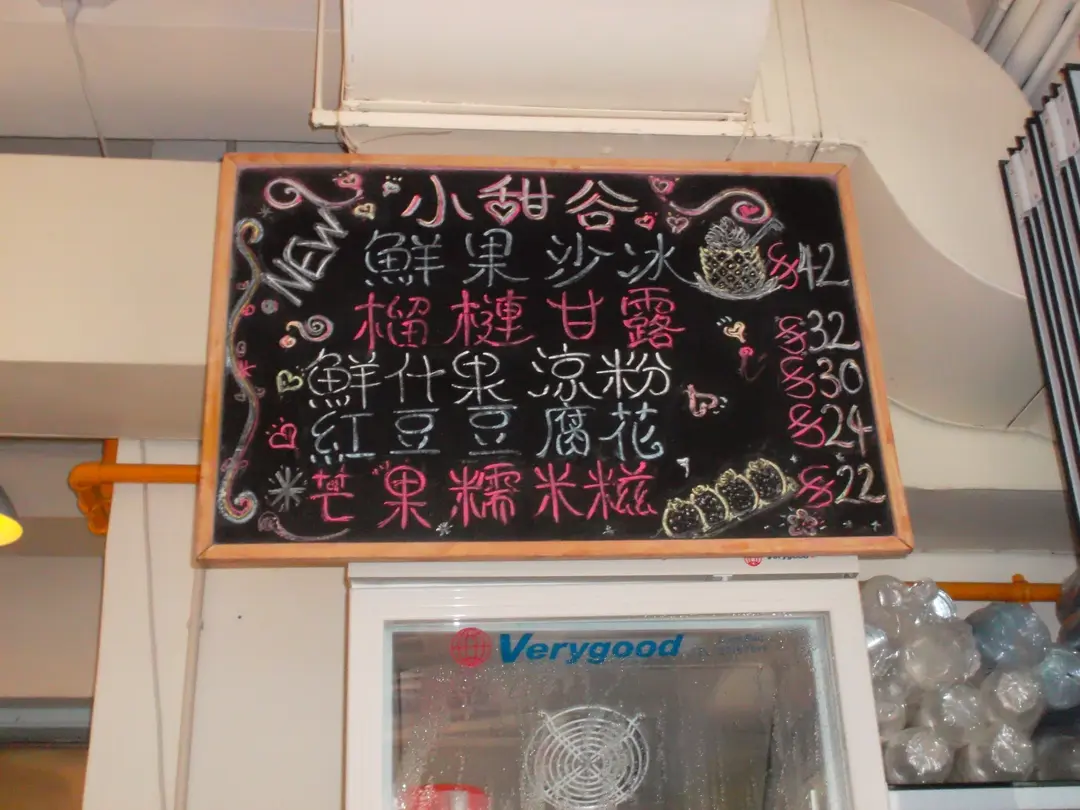 小甜谷
NEW
鮮果沙冰 $42
榴槤甘露 $32
鮮什果涼粉 $30
紅豆豆腐花 $24
芒果糯米糍 $22
Verygood